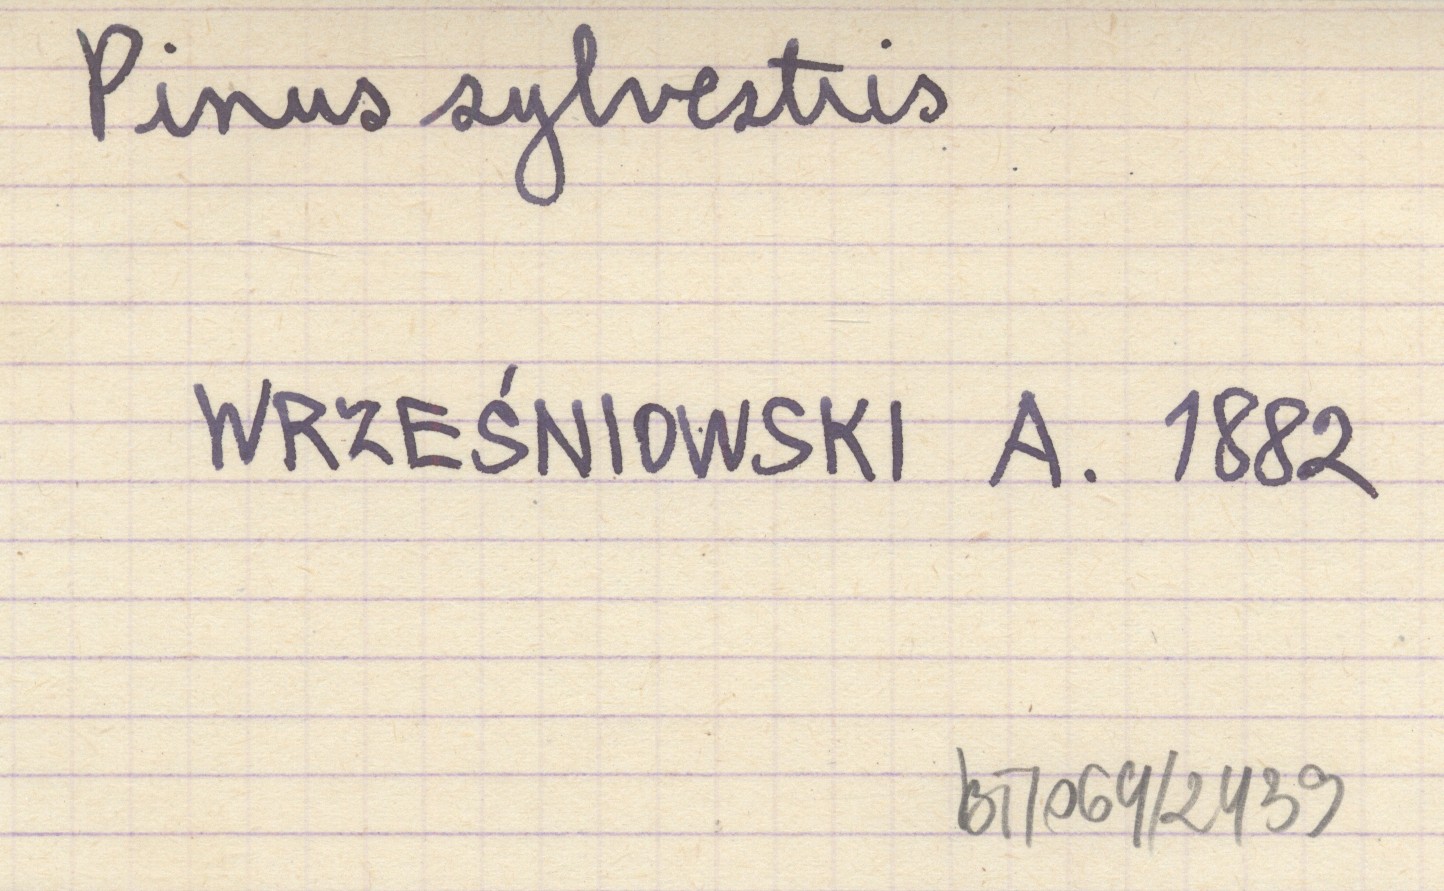 Pinus sylvestris
WRZEŚNIOWSKI A. 1882
BT/064/2439